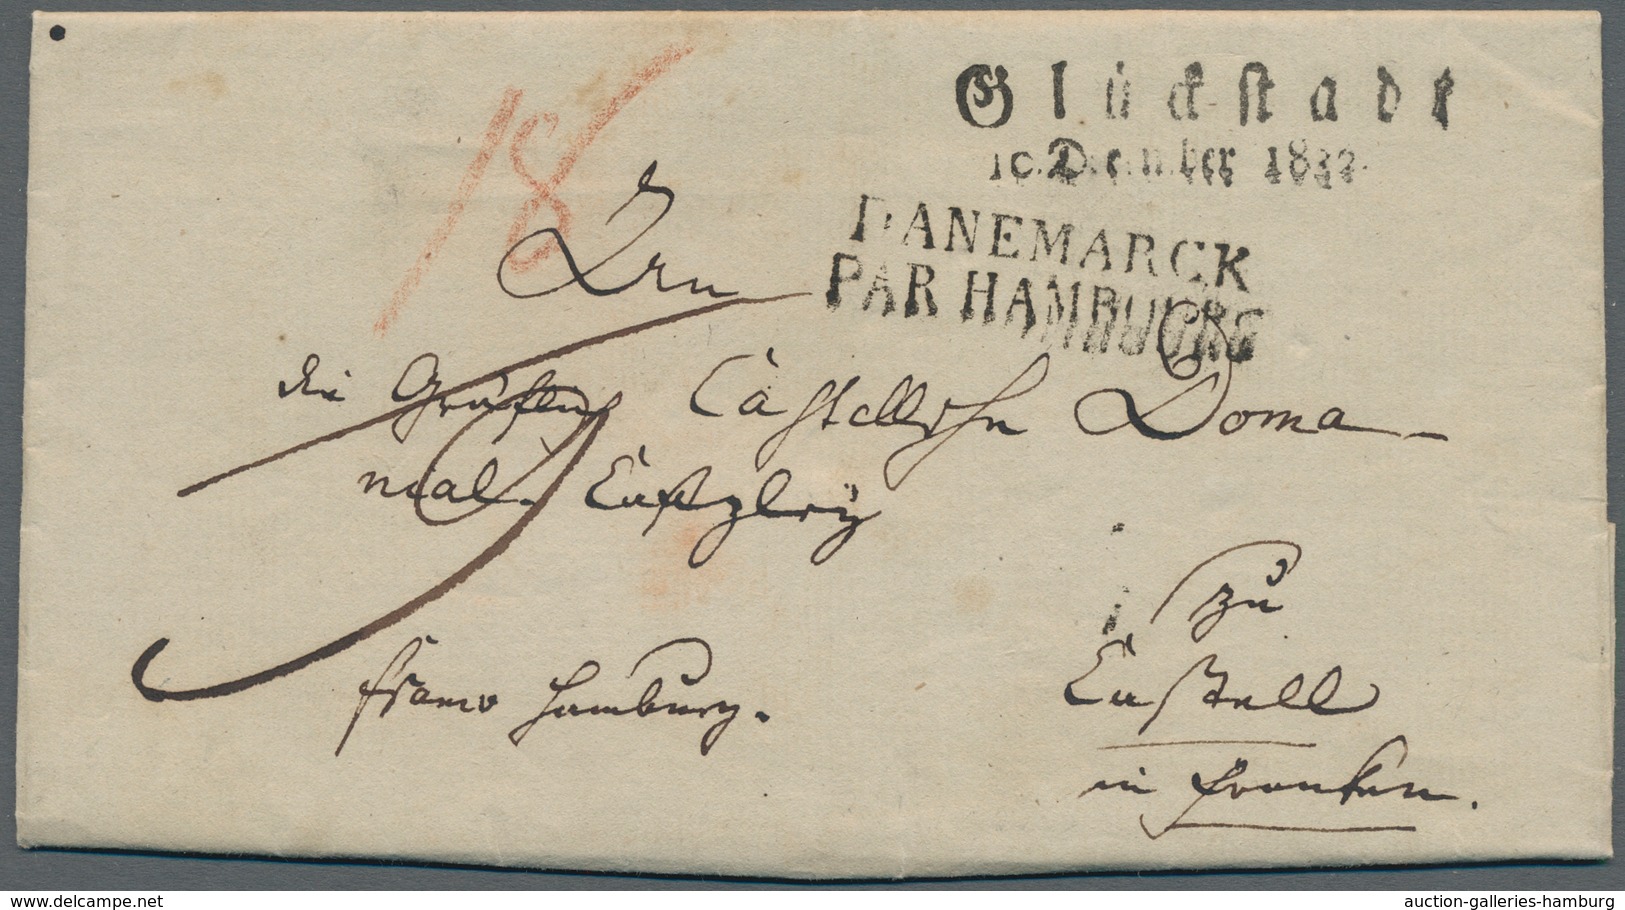 18
Glückstadt
10. December 1832.
DANEMARCK
PAR HAMBOURG
die Gräflich Castellische Doma-
nial-Cantzley
zu
Castell
in Franken.
franco Hamburg.
www.delcampe.net
auction-galleries-hamburg